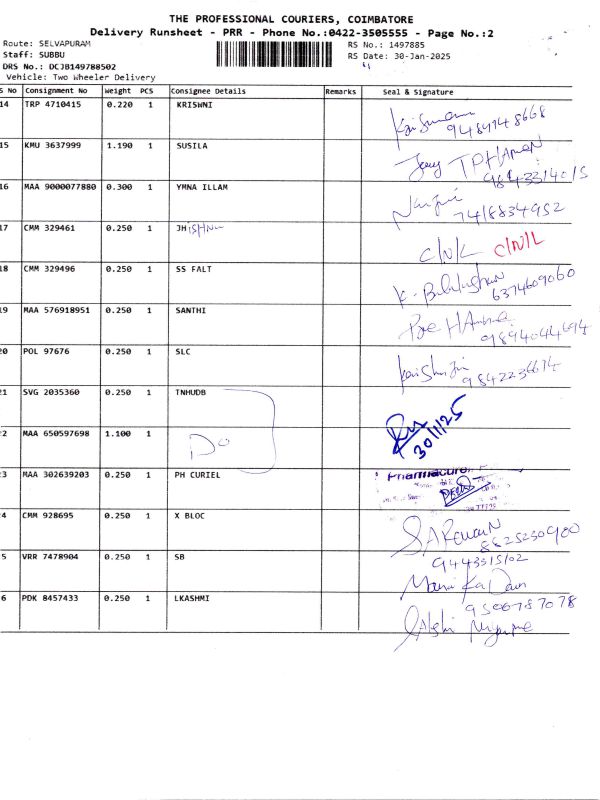 THE PROFESSIONAL COURIERS, COIMBATORE
Delivery Runsheet - PRR - Phone No.:0422-3505555 - Page No.:2
Route: SELVAPURAM
RS No.: 1497885
Staff: SUBBU
RS Date: 30-Jan-2025
DRS No.: DCJB149788502
Vehicle: Two Wheeler Delivery
S No Consignment No Weight PCS Consignee Details Remarks Seal & Signature
14 TRP 4710415 0.220 1 KRISWNI
15 KMU 3637999 1.190 1 SUSILA
16 MAA 9000077880 0.300 1 YMNA ILLAM
7418834952
17 CMM 329461 0.250 1 JHISHNU
C/N/L C/N/L
18 CMM 329496 0.250 1 SS FALT
6374609060
19 MAA 576918951 0.250 1 SANTHI
9894044694
20 POL 97676 0.250 1 SLC
21 SVG 2035360 0.250 1 TNHUDB
30/1/25
22 MAA 650597698 1.100 1 Do
23 MAA 302639203 0.250 1 PH CURIEL
24 CMM 928695 0.250 1 X BLOC
25 VRR 7478904 0.250 1 SB
26 PDK 8457433 0.250 1 LKASHMI
9506787078